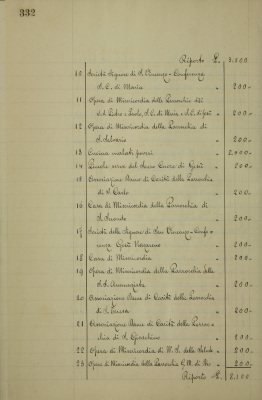 332
Riporto £. 3.000
10 Società Signore di S. Vincenzo - Conferenza
S. C. di Maria " 200 -
11 Opera di Misericordia delle Parrocchie dei
S.S. Pietro e Paolo, S. C. di Maria e S. C. di Gesù " 200 -
12 Opera di Misericordia della Parrocchia di
S. Salvario " 200 -
13 Cucina malati poveri " 2,000 -
14 Piccole serve del Sacro Cuore di Gesù " 200 -
15 Associazione Dame di Carità della Parrocchia
di S. Carlo " 200 -
16 Casa di Misericordia della Parrocchia di
S. Secondo " 200 -
17 Società delle Signore di San Vincenzo - Confe=
renza Gesù Nazareno " 200 -
18 Casa di Misericordia " 200 -
19 Opera di Misericordia della Parrocchia della
SS. Annunziata " 200 -
20 Associazione Dame di Carità della Parrocchia
di S. Teresa " 200 -
21 Associazione Dame di Carità della Parroc=
chia di S. Gioachino " 200 -
22 Opera di Misericordia di N. S. della Salute " 200 -
23 Opera di Misericordia della Parrocchia G. M. di " 200 -
Riporto £.